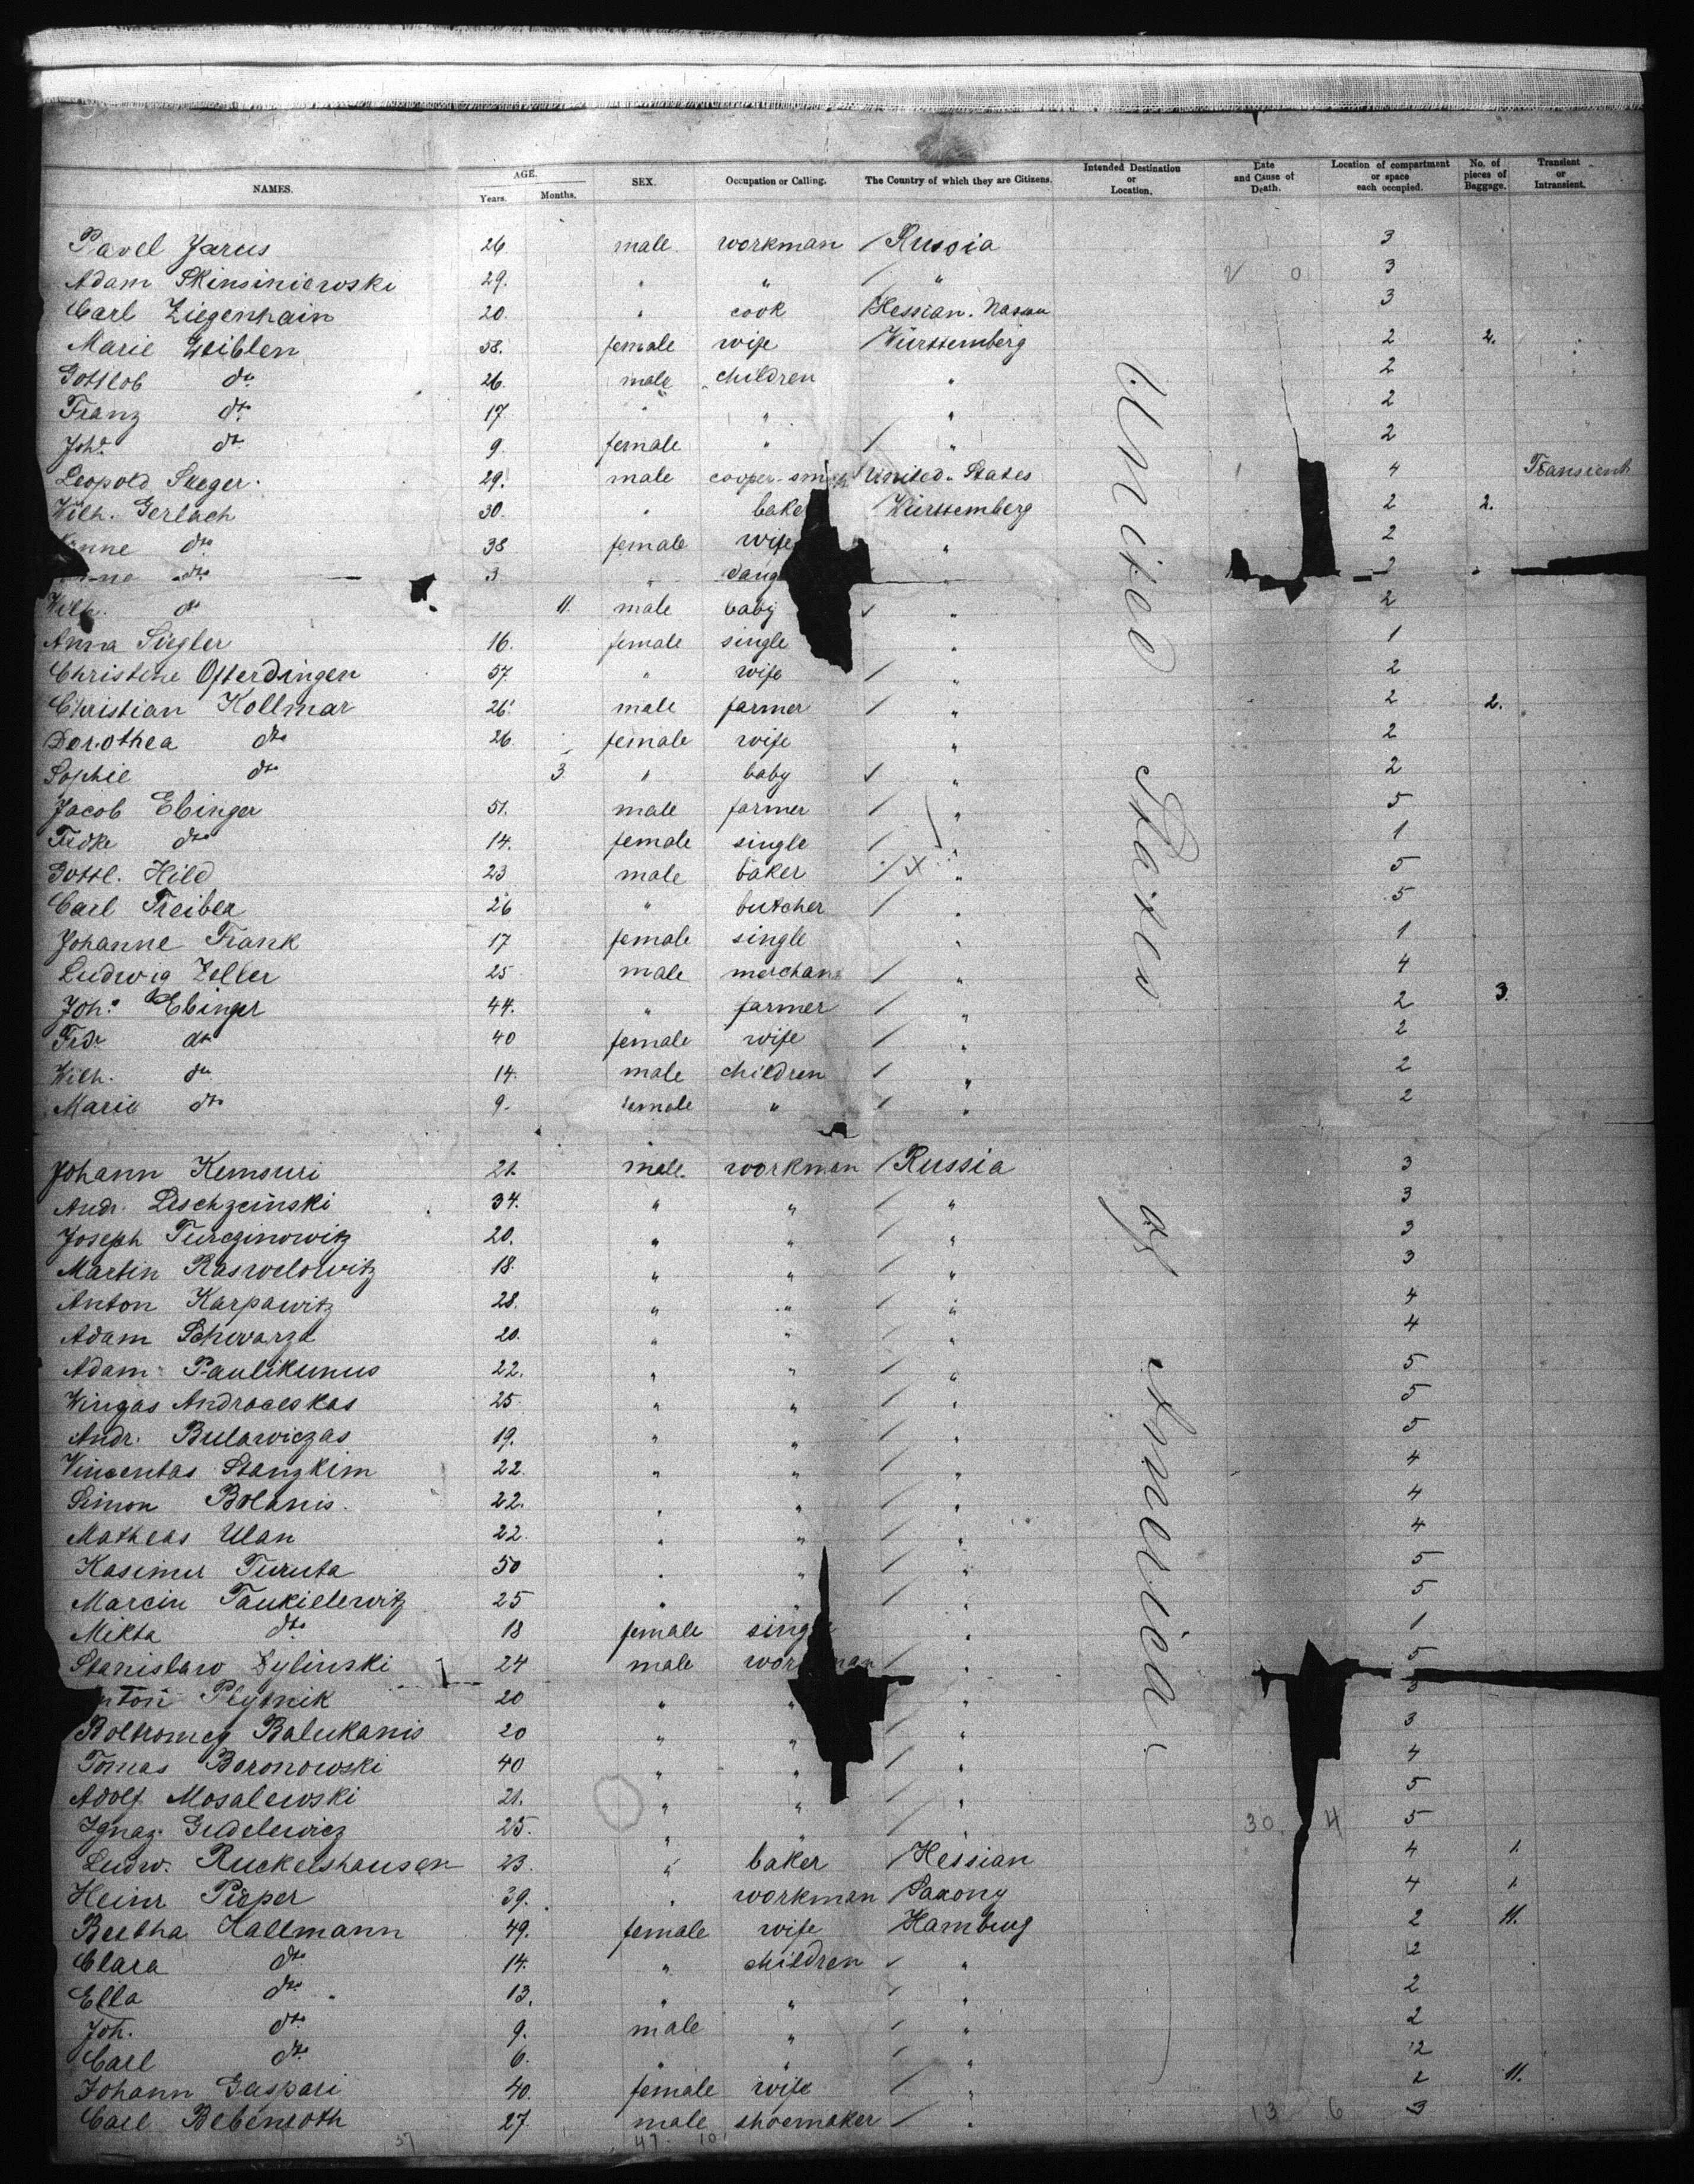 NAMES. AGE. Years. Months. SEX. Occupation or Calling. The Country of which they are Citizens. Intended Destination or Location. Date and Cause of Death. Location of compartment or space each occupied. No. of pieces of Baggage. Transient or Intransient.
Pavel Jarus 26 male workman / Russia 3
Adam Skinsiniewski 29. " " / " 3
Carl Ziegenhain 20. " cook Hessian. Nassau 3
Marie Weiblen 58. female wife Württemberg 2 2.
Gottlob do 26. male children " 2
Franz do 17 " " " 2
Joh. do 9 female " / " 2
Leopold Seeger 29. male cooper-smith United States 4 Transient
Wilh. Gerlach 30. " bake Württemberg 2 2.
do 38 female wife " 2
do 3 " daug " 2
Wilh. do 11. male baby / " 2
Anna Siegler 16. female single " 1
Christine Ofterdingen 57 " wife / " 2
Christian Kollmar 26 male farmer / " 2 2.
Dorothea do 26 female wife " 2
Sophie do 3 " baby / " 2
Jacob Ebinger 51. male farmer / " 5
Fridke do 14. female single / " 1
Gottl. Hild 23 male baker / x " 5
Carl Treiber 26 " butcher / " 5
Johanne Frank 17 female single " 1
Ludwig Zeller 25 male merchant / " 4
Joh. Ebinger 44. " farmer / " 2 3.
Frdr do 40 female wife / " 2
Wilh. do 14. male children / " 2
Marie do 9. female " / " 2
Johann Kemsuri 21. male workman / Russia 3
Andr. Leschzcinski 34. " " / " 3
Joseph Turczinowitz 20. " " / " 3
Martin Raswelowitz 18. " " / " 3
Anton Karpawitz 28. " " / " 4
Adam Schwarzd 20. " " / " 4
Adam Paulikunus 22. " " / " 5
Wingas Androceskas 25 " " / " 5
Andr. Bulawiczas 19. " " / " 5
Vincentas Stanzkim 22. " " / " 4
Simon Bolanis. 22. " " / " 4
Matheas Ulan 22. " " / " 4
Kasimir Turuta 50 " " / " 5
Marcin Tankielewitz 25 " " / " 5
Mikta do 18 female singl " 1
Stanislaw Zylinski 24 male workman / " 5
nton Plytnik 20 " " / "
Boltromeg Balukanis 20 " " / " 3
Tomas Boronowski 40 " " / " 4
Adolf Mosalewski 21. " " / " 5
Ignaz Gudelewicz 25. " " / " 30 4 5
Ludw. Ruckelshausen 23. " baker / Hessian 4 1.
Heinr Pieper 39. " workman / Saxony 4 1.
Bertha Hallmann 49. female wife Hamburg 2 11.
Clara do 14. " children / " 2
Ella do 13. " " " 2
Joh. do 9. male " / " 2
Carl do 6. " " / " 2
Johann Gaspari 40. female wife / " 2 11.
Carl Bebenroth 27. male shoemaker / " 13 6 3
37 47 10
United States of America